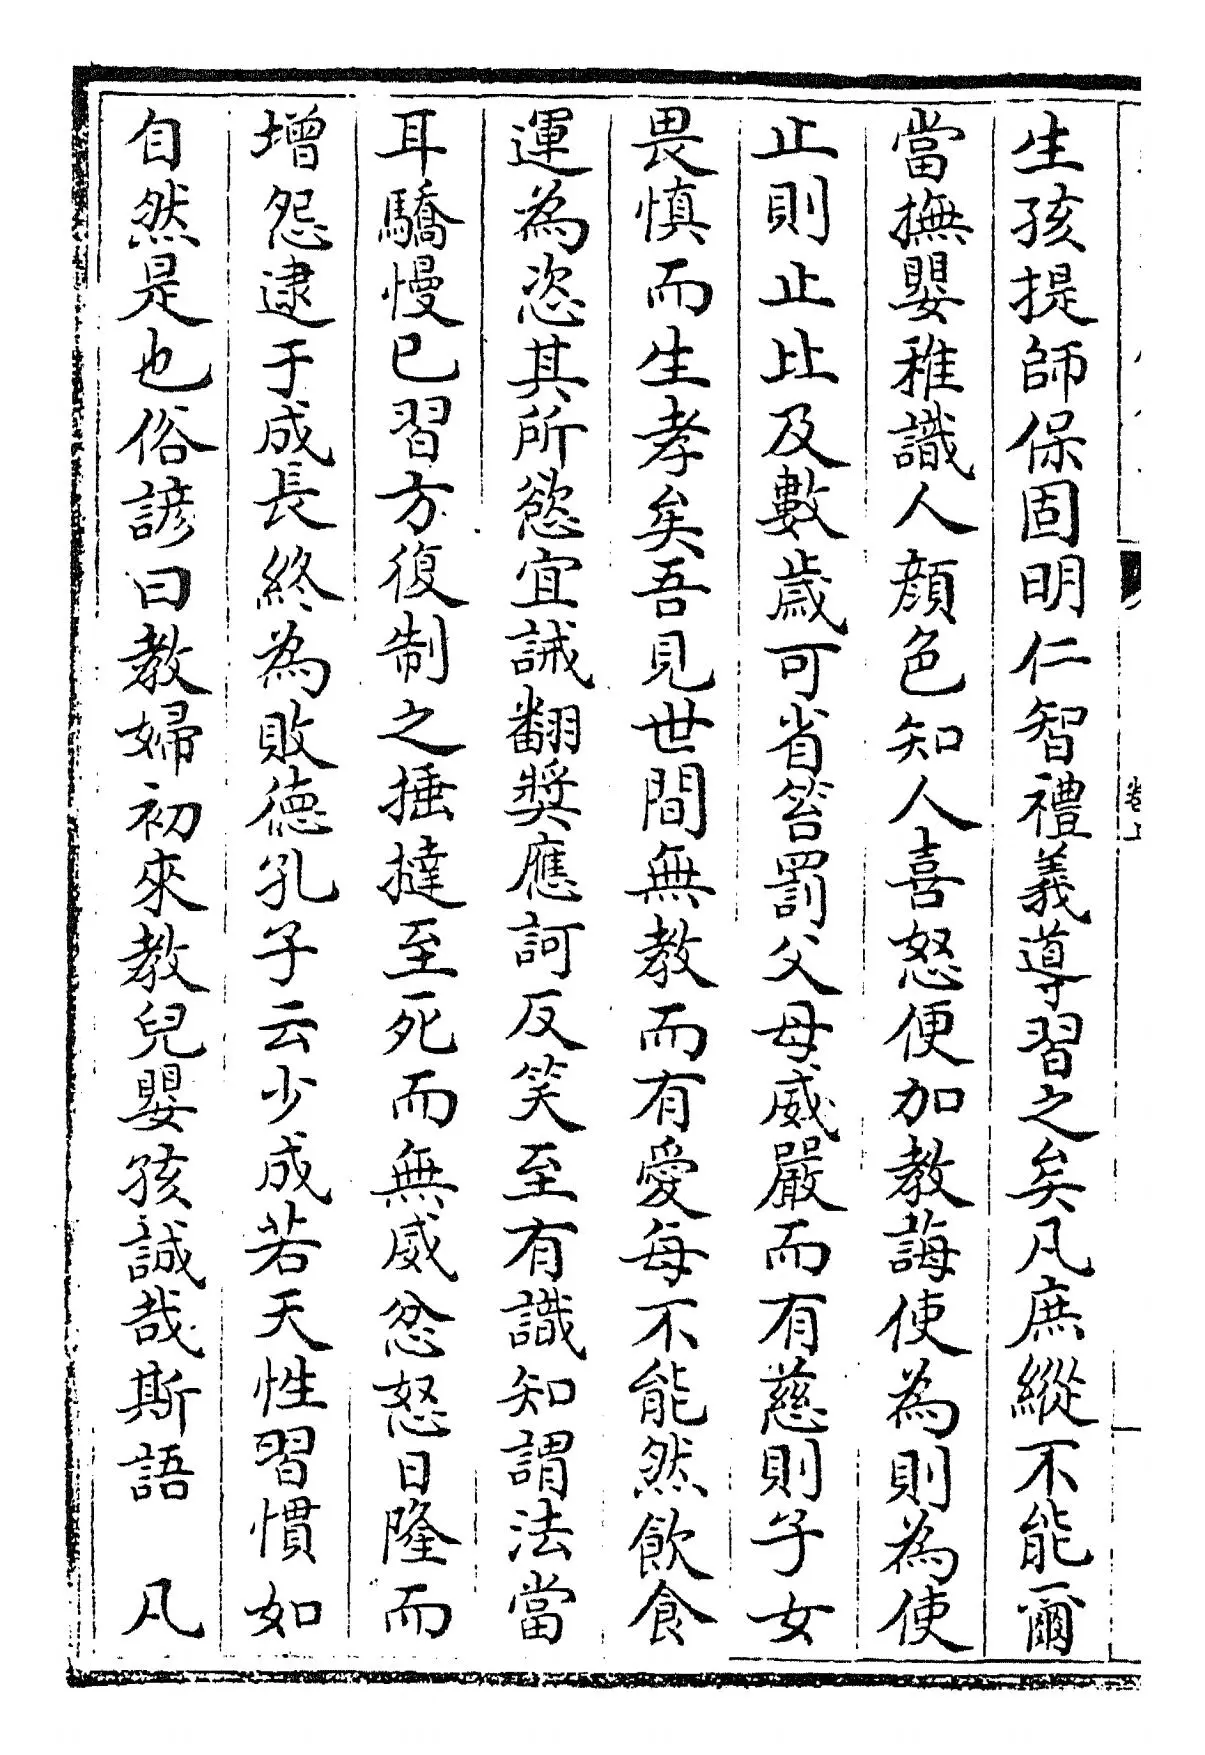 生孩提師保固明仁智禮義導習之矣凡庶縱不能爾
當撫嬰稚識人顔色知人喜怒便加教誨使為則為使
止則止比及數歲可省笞罰父母威嚴而有慈則子女
畏慎而生孝矣吾見世間無教而有愛每不能然飲食
運為恣其所慾宜誡翻奬應訶反笑至有識知謂法當
耳驕慢已習方復制之捶撻至死而無威忿怒日隆而
增怨逮于成長終為敗德孔子云少成若天性習慣如
自然是也俗諺曰教婦初來教兒嬰孩誠哉斯語　凡
卷上